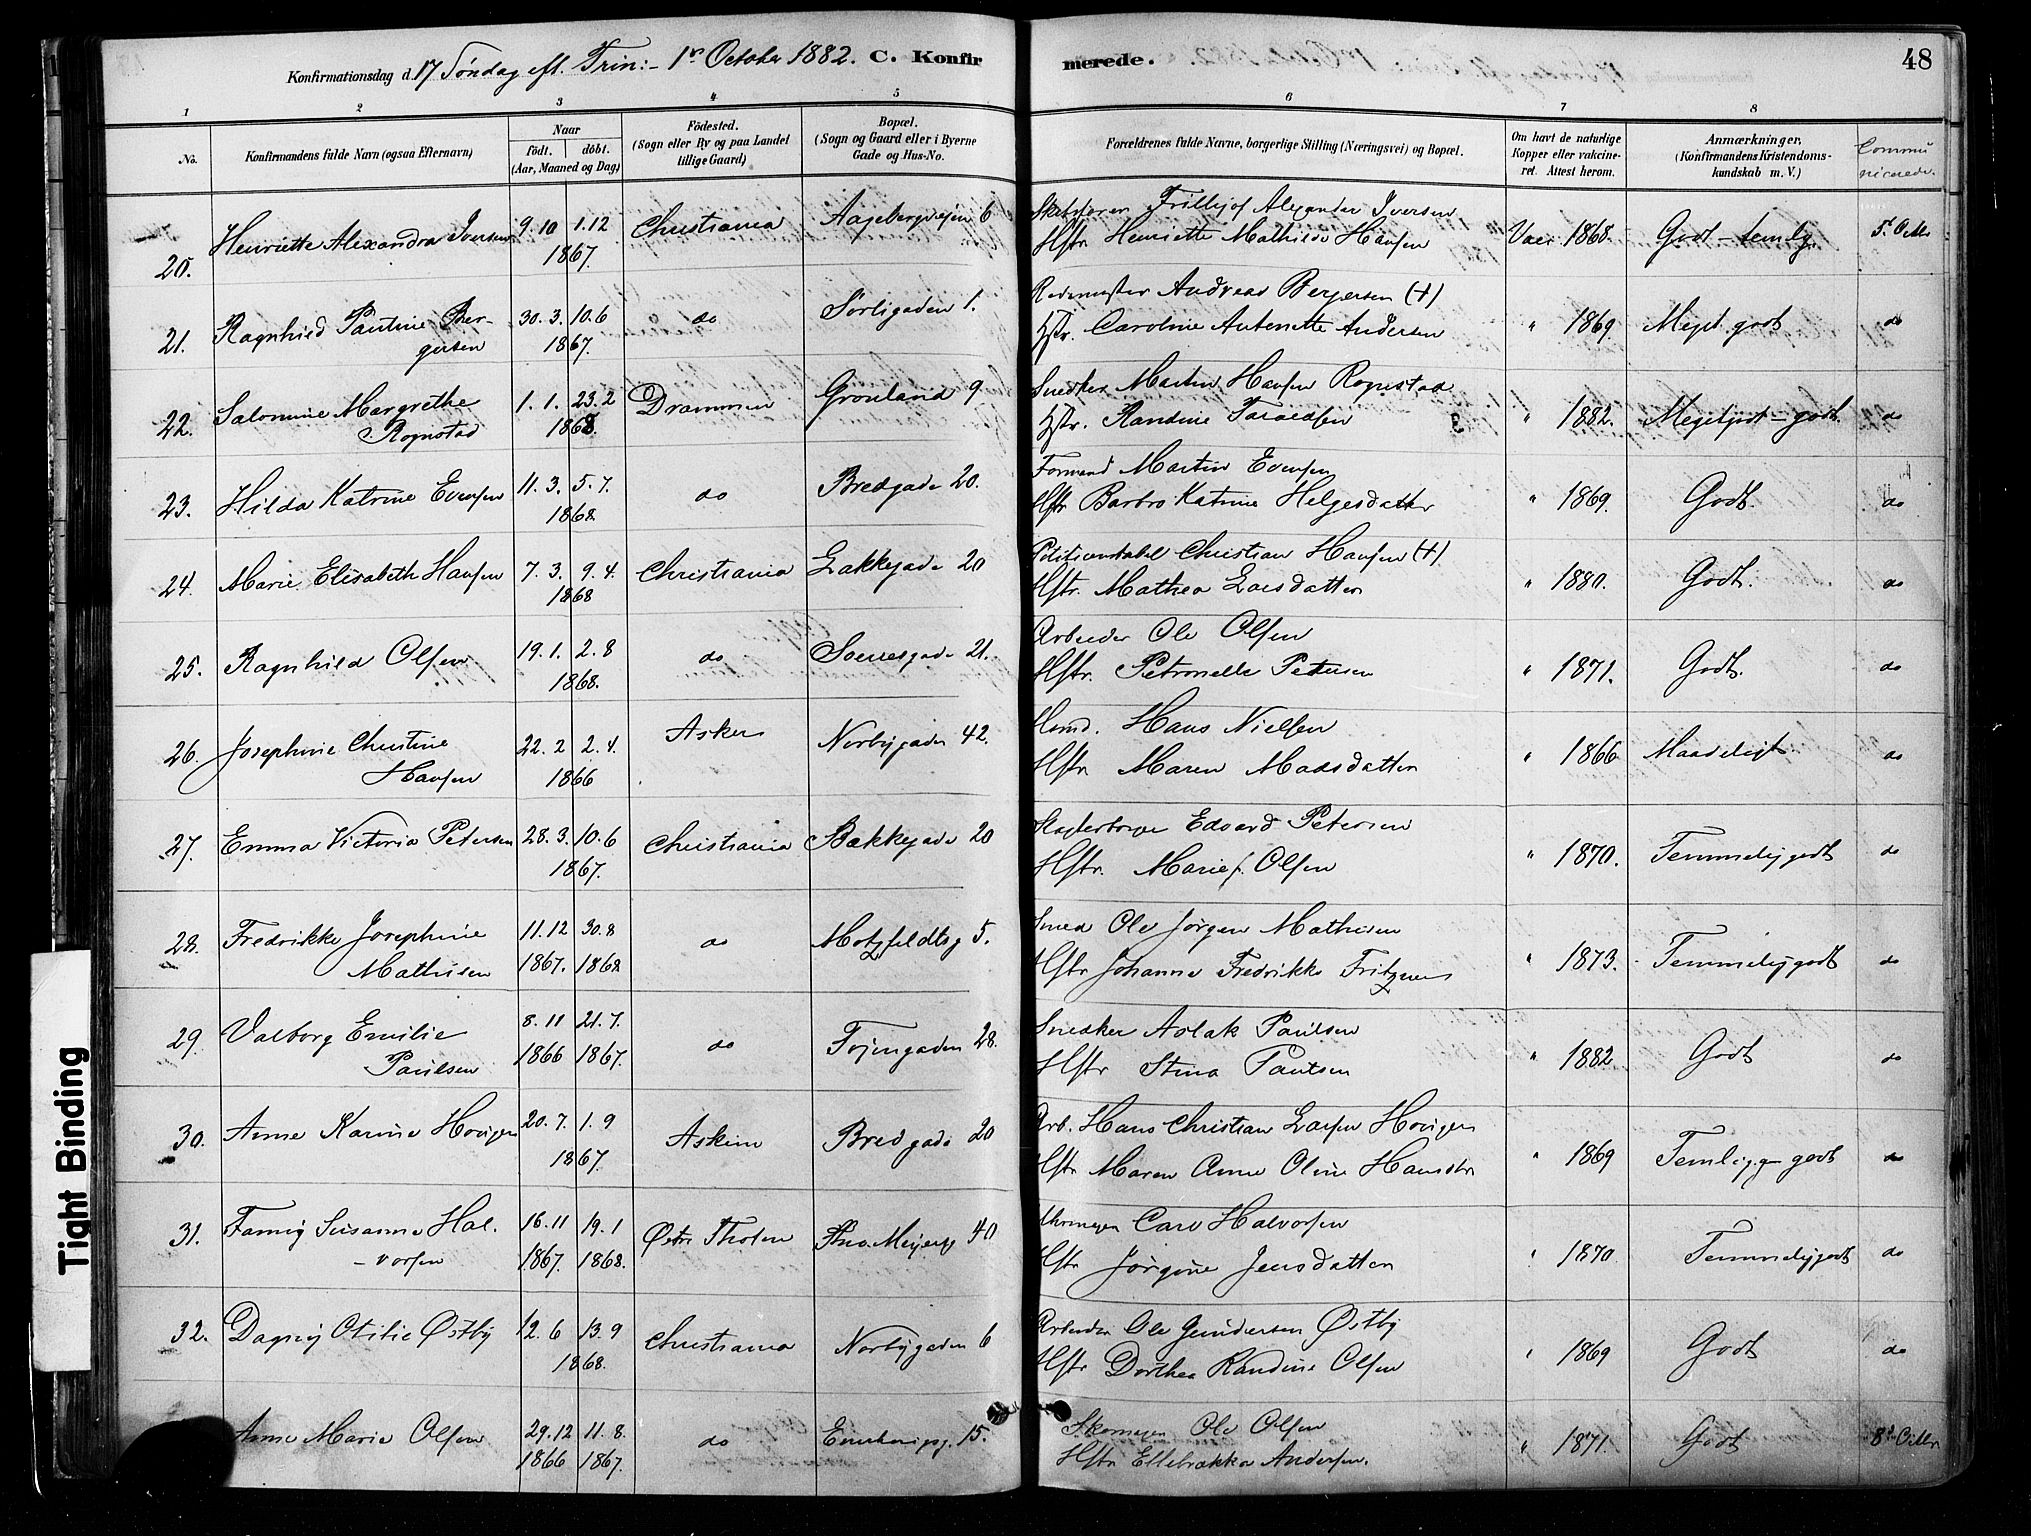 Konfirmationsdag d. 17 Søndag eft. Trin: - 1r October 1882. C. Konfirmerede. 48
1 2 3 4 5 6 7 8
No. Konfirmandens fulde Navn (ogsaa Efternavn) Naar Födt. döbt. (Aar, Maaned og Dag) Födested. (Sogn eller By og paa Landet tillige Gaard) Bopæl. (Sogn og Gaard eller i Byerne Gade og Hus-No. Forældrenes fulde Navne, borgerlige Stilling (Næringsvei) og Bopæl. Om havt de naturlige Kopper eller vakcineret. Attest herom. Anmærkninger. (Konfirmandens Kristendomskundskab m. V.) Communicerede.
20. Henriette Alexandra Iversen 9.10 1.12 1867. Christiania Aagebergveien 6 Alexander Iversen
Hstr Henriette Mathilde Hansen Vacc 1868. Godt - temlig 5. Octbr
21. Ragnhild Pauline Bergersen 30.3. 10.6 1867. do Sørligaden 1. Andreas Bergersen (+)
Hstr. Caroline Antonette Andersen " 1869. Meget godt do
22. Salomine Margrethe Rognstad 1.1. 23.2 1868. Drammen Grønland 9 Snedker Martin Hansen Rognstad
Hstr. Randine " 1882. Meget godt - godt. do
23. Hilda Katrine Evensen 11.3. 5.7. 1868. do Bredgade 20. Formand Martin Evensen
Hstr Barbro Katrine Helgesdatter " 1869. Godt. do
24. Marie Elisabeth Hansen 7.3. 9.4. 1868 Christiania Lakkegade 20 Politikonstabel Christian Hansen (+)
Hstr. Mathea Larsdatter " 1880. Godt. do
25. Ragnhild Olsen 19.1. 2.8 1868. do 21. Arbeider Ole Olsen
Hstr. Petronelle Petersen " 1871. Godt. do
26. Josephine Christine Hansen 22.2 2.4. 1866 Asker Norbygaden 42. Hans Nielsen
Hstr Maren Madsdatter " 1866 Maadeligt do
27. Emma Victoria Petersen 28.3. 10.6 1867. Christiania Bakkegade 20 Edvard Petersen
Hstr. Marie f. Olsen " 1870. Temmelig godt do
28. Fredrikke Josephine Mathisen 11.12 1867. 30.8 1868 do Motzfeldtsg 5. Smed Ole Jørgen Mathisen
Hstr Johanne Fredrikke Fritzner " 1873. Temmelig godt do
29. Valborg Emilie Paulsen 8.11 1866 21.7. 1867. do Tøiengaden 28. Snedker Aslak Paulsen
Hstr Stina Paulsen " 1882 Godt do
30. Anne Karine Hovigen 20.7. 1.9 1867. Askim Bredgade 20 Arb. Hans Christian Larsen Hovigen
Hstr Maren Anne Oline Hansdtr " 1869 Temlig godt do
31. Fanny Susanne Halvorsen 16.11 1867. 19.1 1868. Østre Thoten Ths. Meyersg 40 Uhrmager Carl Halvorsen
Hstr Jørgine Jensdatter " 1870 Temmelig godt do
32. Dagny Otilie Østby 12.6 13.9 1868. Christiania Norbygaden 6 Arbeider Ole Gundersen Østby
Hstr Dorthea Randine Olsen " 1869 Godt do
Anne Marie Olsen 29.12 1866 11.8. 1867. do Enerhaugsg. 15. Skomager Ole Olsen
Hstr Ellebrakka Andersen. " 1871 Godt 8' Octbr
Tight Binding